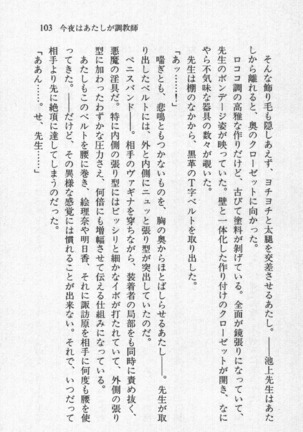 103 今夜はあたしが調教師
そんな飾り毛も隠しあえず、ヨチヨチと太腿を交差させるあたし。――池上先生はあた
しから離れると、奥のクローゼットに向かった。
ロココ調の高雅な作りだけど、古びて塗料が剥げている。全面が鏡張りになっていて、
先生のボンデージ姿が映っていた。壁と一体化した作り付けのクローゼットが開き、なに
やら不気味な器具の数々が覗いた。
先生は棚のなかから、黒革のT字ベルトを取り出した。
「あッ……！」
喘ぎとも、悲鳴ともつかないものを、胸の奥からほとばしらせるあたし――。先生が取
り出したベルトには、外と内側にニュッと張り型が突出していたのだ。
ペニスバンド――。相手のヴァギナを穿ちながら、装着者の局部をも同時に責め抜く、
悪魔の淫具だ。特に内側の張り型にはビッシリと細かなイボが打たれていて、外側の張り
型に加わったわずかな圧力さえ、何倍にも増幅させて伝える仕組みになっている。
あたしもこのベルトを腰に巻き、絵理奈や明日香、それに諏訪原を相手に何度も腰を使
ってきた。――だけど、その異様な感覚には慣れることが出来ない。それで、いつだって
相手より先に絶頂に達してしまうのだった。
「ああん……。せ、先生……」